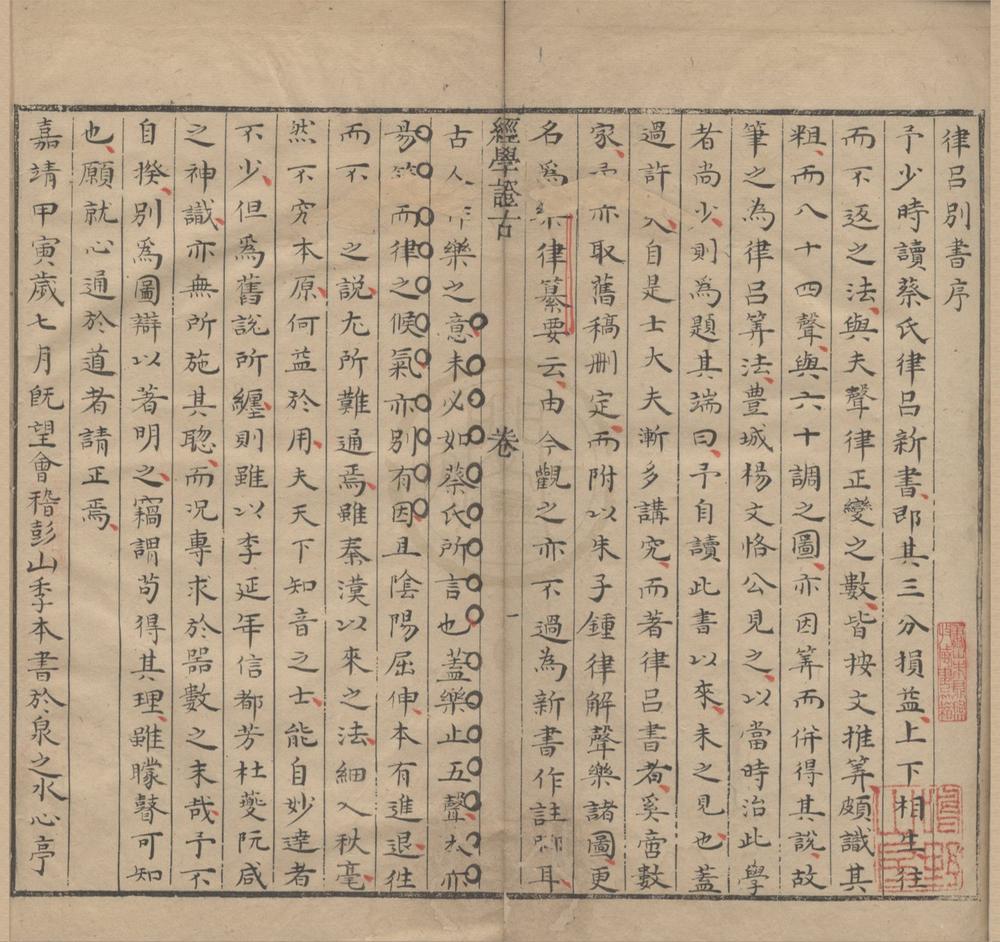 律呂別書序
予少時讀蔡氏律呂新書即其三分損益上下相生往
而不返之法與夫聲律正變之數皆按文推筭頗識其
粗而八十四聲與六十調之圖亦因筭而併得其說故
筆之為律呂筭法豊城楊文恪公見之以當時治此學
者尚少則爲題其端曰予自讀此書以來未之見也蓋
過許入自是士大夫漸多講究而著律呂書者奚啻數
家亦取舊稿刪定而附以朱子鍾律解聲樂諸圖更
名爲律纂要云由今觀之亦不過為新書作註脚耳
經學證古
卷
一
古人作樂之意未必如蔡氏所言也蓋樂止五聲亦
易而律之候氣亦別有因且陰陽屈伸本有進退往
而不之說尢所難通焉雖秦漢以來之法細入秋毫
然不究本原何益於用夫天下知音之士能自妙達者
不少但爲舊說所纏則雖以李延年信都芳杜夔阮咸
之神識亦無所施其聰而況專求於噐數之末哉予不
自揆別爲圖辯以著明之竊謂苟得其理雖矇瞽可知
也願就心通於道者請正焉
嘉靖甲寅歲七月旣望會稽彭山季本書於泉之水心亭